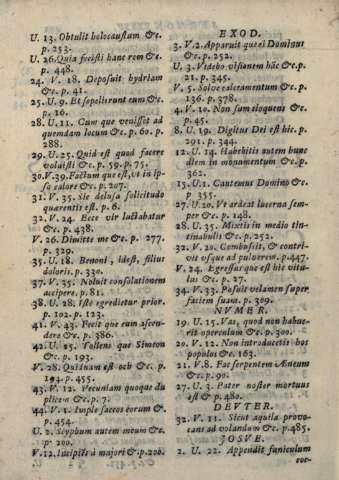 U. 13. Obtulit holocaustum &c.
p. 253.
U. 26. Quia fecisti hanc rem &c.
p. 448.
24. V. 18. Deposuit hydriam
&c. p. 41.
25. U. 9. Et sepelierunt eum &c.
p. 16.
28. U. 11. Cum que venisset ad
quemdam locum &c. p. 60. p.
288.
29. U. 25. Quid est quod facere
voluisti &c. p. 59. p. 75.
30. V. 39. Factum que est, ut in ip-
so calore &c. p. 207.
31. V. 35. Sic delusa solicitudo
quærentis est. p. 6.
32. V. 24. Ecce vir luctabatur
&c. p. 438.
V. 26. Dimitte me &c. p. 277.
p. 329.
35. U. 18. Benoni, idest, filius
doloris. p. 330.
37. V. 35. Noluit consolationem
accipere. p. 81.
38. U. 28. Iste egredietur prior.
p. 102. p. 123.
41. V. 43. Fecit que eum ascen-
dere &c. p. 386.
42. U. 25. Tollens que Simeon
&c. p. 193.
V. 28. Quidnam est hoc &c. p.
194. p. 455.
43. V. 12. Pecuniam quoque du-
plicem &c. p. 7.
44. V. 1. Imple saccos eorum &c.
p. 454.
U. 2. Scyphum autem meum &c.
p. 200.
V. 12. Incipiẽs à majori &c. p. 200.
EXOD.
3. V. 2. Apparuit que ei Dominus
&c. p. 252.
U. 3. Videbo visionem hãc &c. p.
21. p. 345.
V. 5. Solve calceamentum &c. p.
136. p. 378.
4. V. 10. Non sum eloquens &c.
p. 45.
8. U. 19. Digitus Dei est hic. p.
291. p. 344.
12. U. 14. Habebitis autem hunc
diem in monumentum &c. p.
362.
15. U. 1. Cantemus Domino &c.
p. 355.
27. U. 20. Ve ardeat lucerna sem-
per &c. p. 148.
28. U. 35. Mixtis in medio tin-
tinabulis &c. p. 252.
32. V. 20. Combussit, & contri-
vit usque ad pulverem. p. 447.
V. 24. Egressus que est hic vitu-
lus &c. p. 27.
34. V. 33. Posuit velamen super
faciem suam. p. 309.
NVMER.
19. U. 15. Vas, quod non habue-
rit operculum &c. p. 300.
20. V. 12. Non introducetis hos
populos &c. 163.
21. V. 8. Fac serpentem Æneum
&c. p. 90.
27. U. 3. Pater noster mortuus
est & p. 480.
DEVTER.
32. V. 11. Sicut aquila provo-
cans ad volandum &c. p. 485.
JOSVE.
2. U. 22. Appendit funiculum
coc-